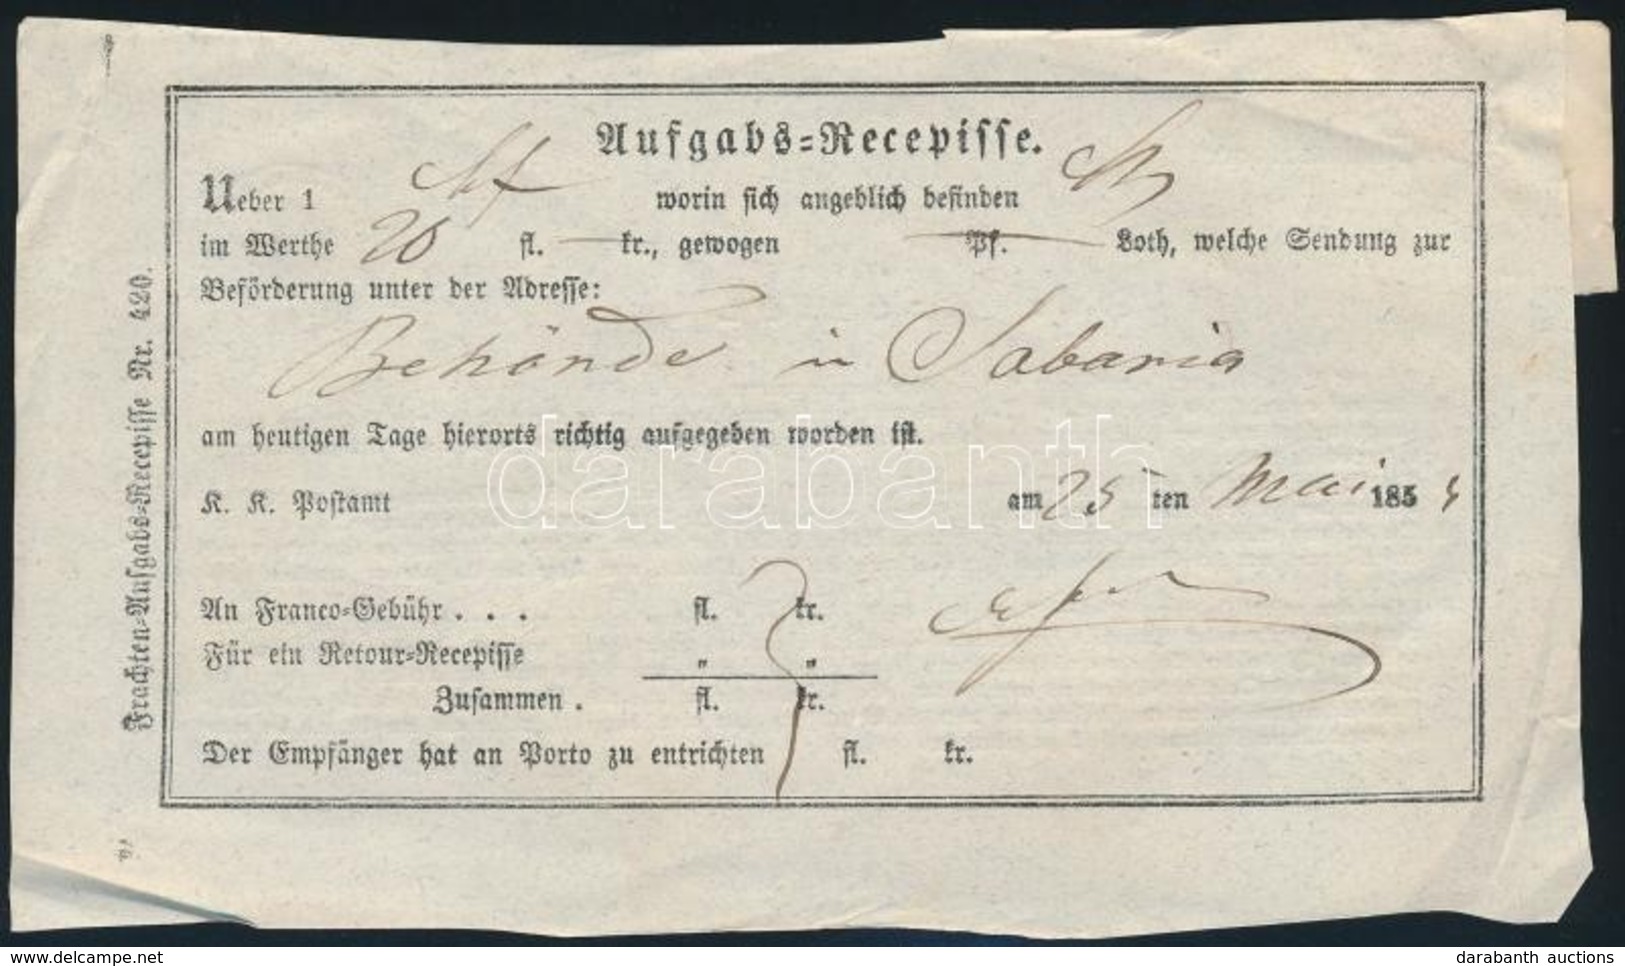 Aufgabs-Recepisse.
Ueber 1 worin sich angeblich befinden
im Werthe 20 fl. kr., gewogen Pf. Loth, welche Sendung zur
Beförderung unter der Adresse:
Behörde in Sabaria
am heutigen Tage hierorts richtig aufgegeben worden ist.
K. K. Postamt am 25 ten Mai 1854
An Franco-Gebühr . . . fl. kr.
Für ein Retour-Recepisse " "
Zusammen . fl. kr.
Der Empfänger hat an Porto zu entrichten fl. kr.
Frachten-Aufgabs-Recepisse Nr. 420.
darabanth
www.delcampe.net
darabanth auctions